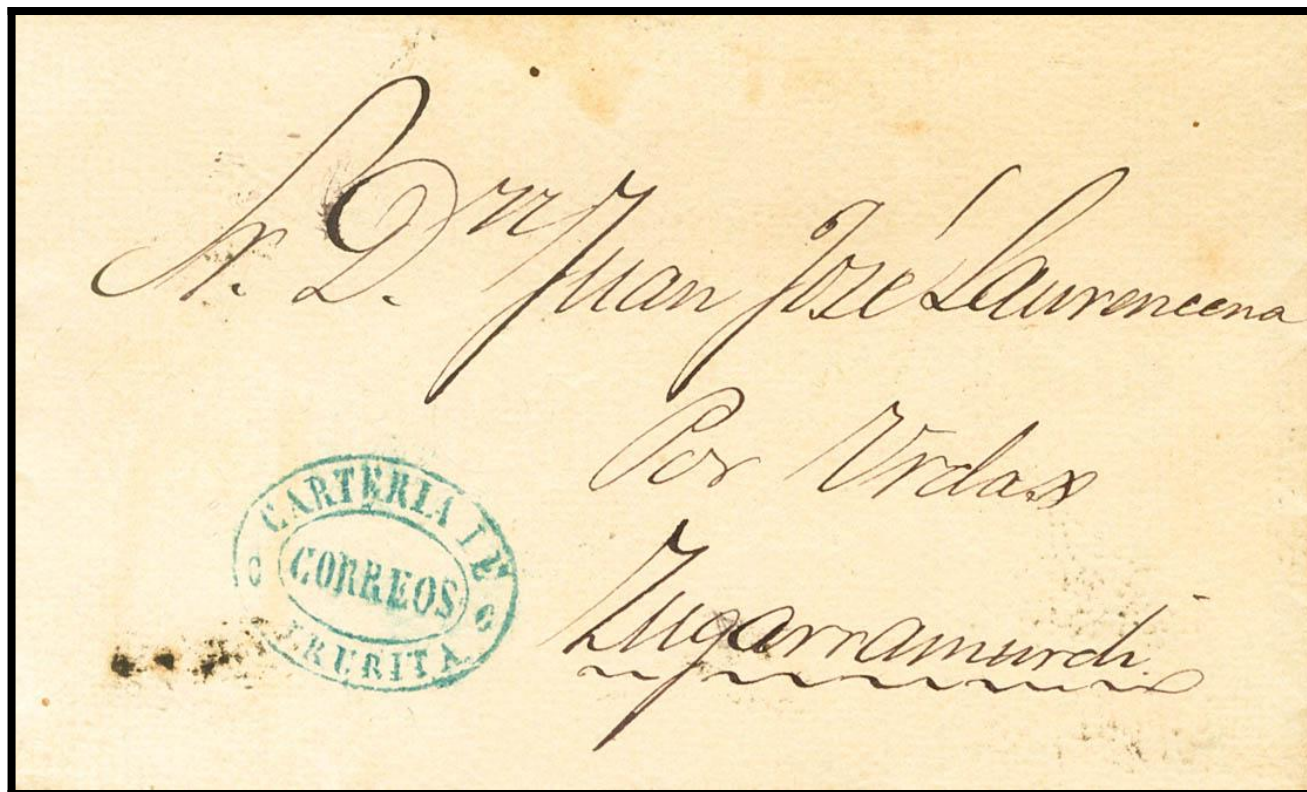 Sr. D. Dn Juan José Laurencena
Por Urdax
Zugarramurdi
CARTERIA DE
CORREOS
YRURITA